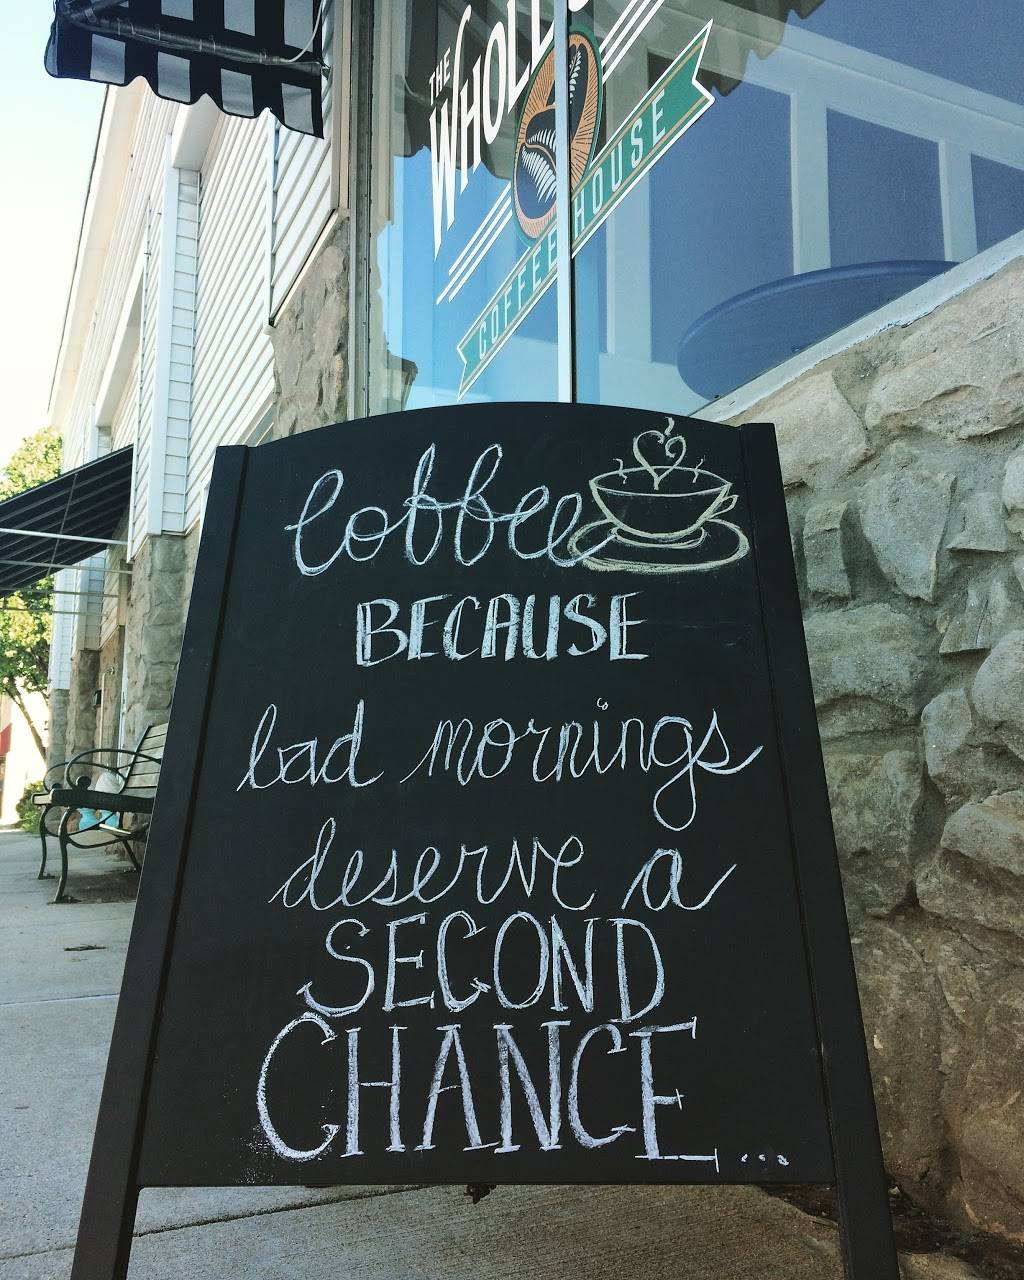 THE
WHOLE
COFFEE HOUSE
Coffee
BECAUSE
bad mornings
deserve a
SECOND
CHANCE...